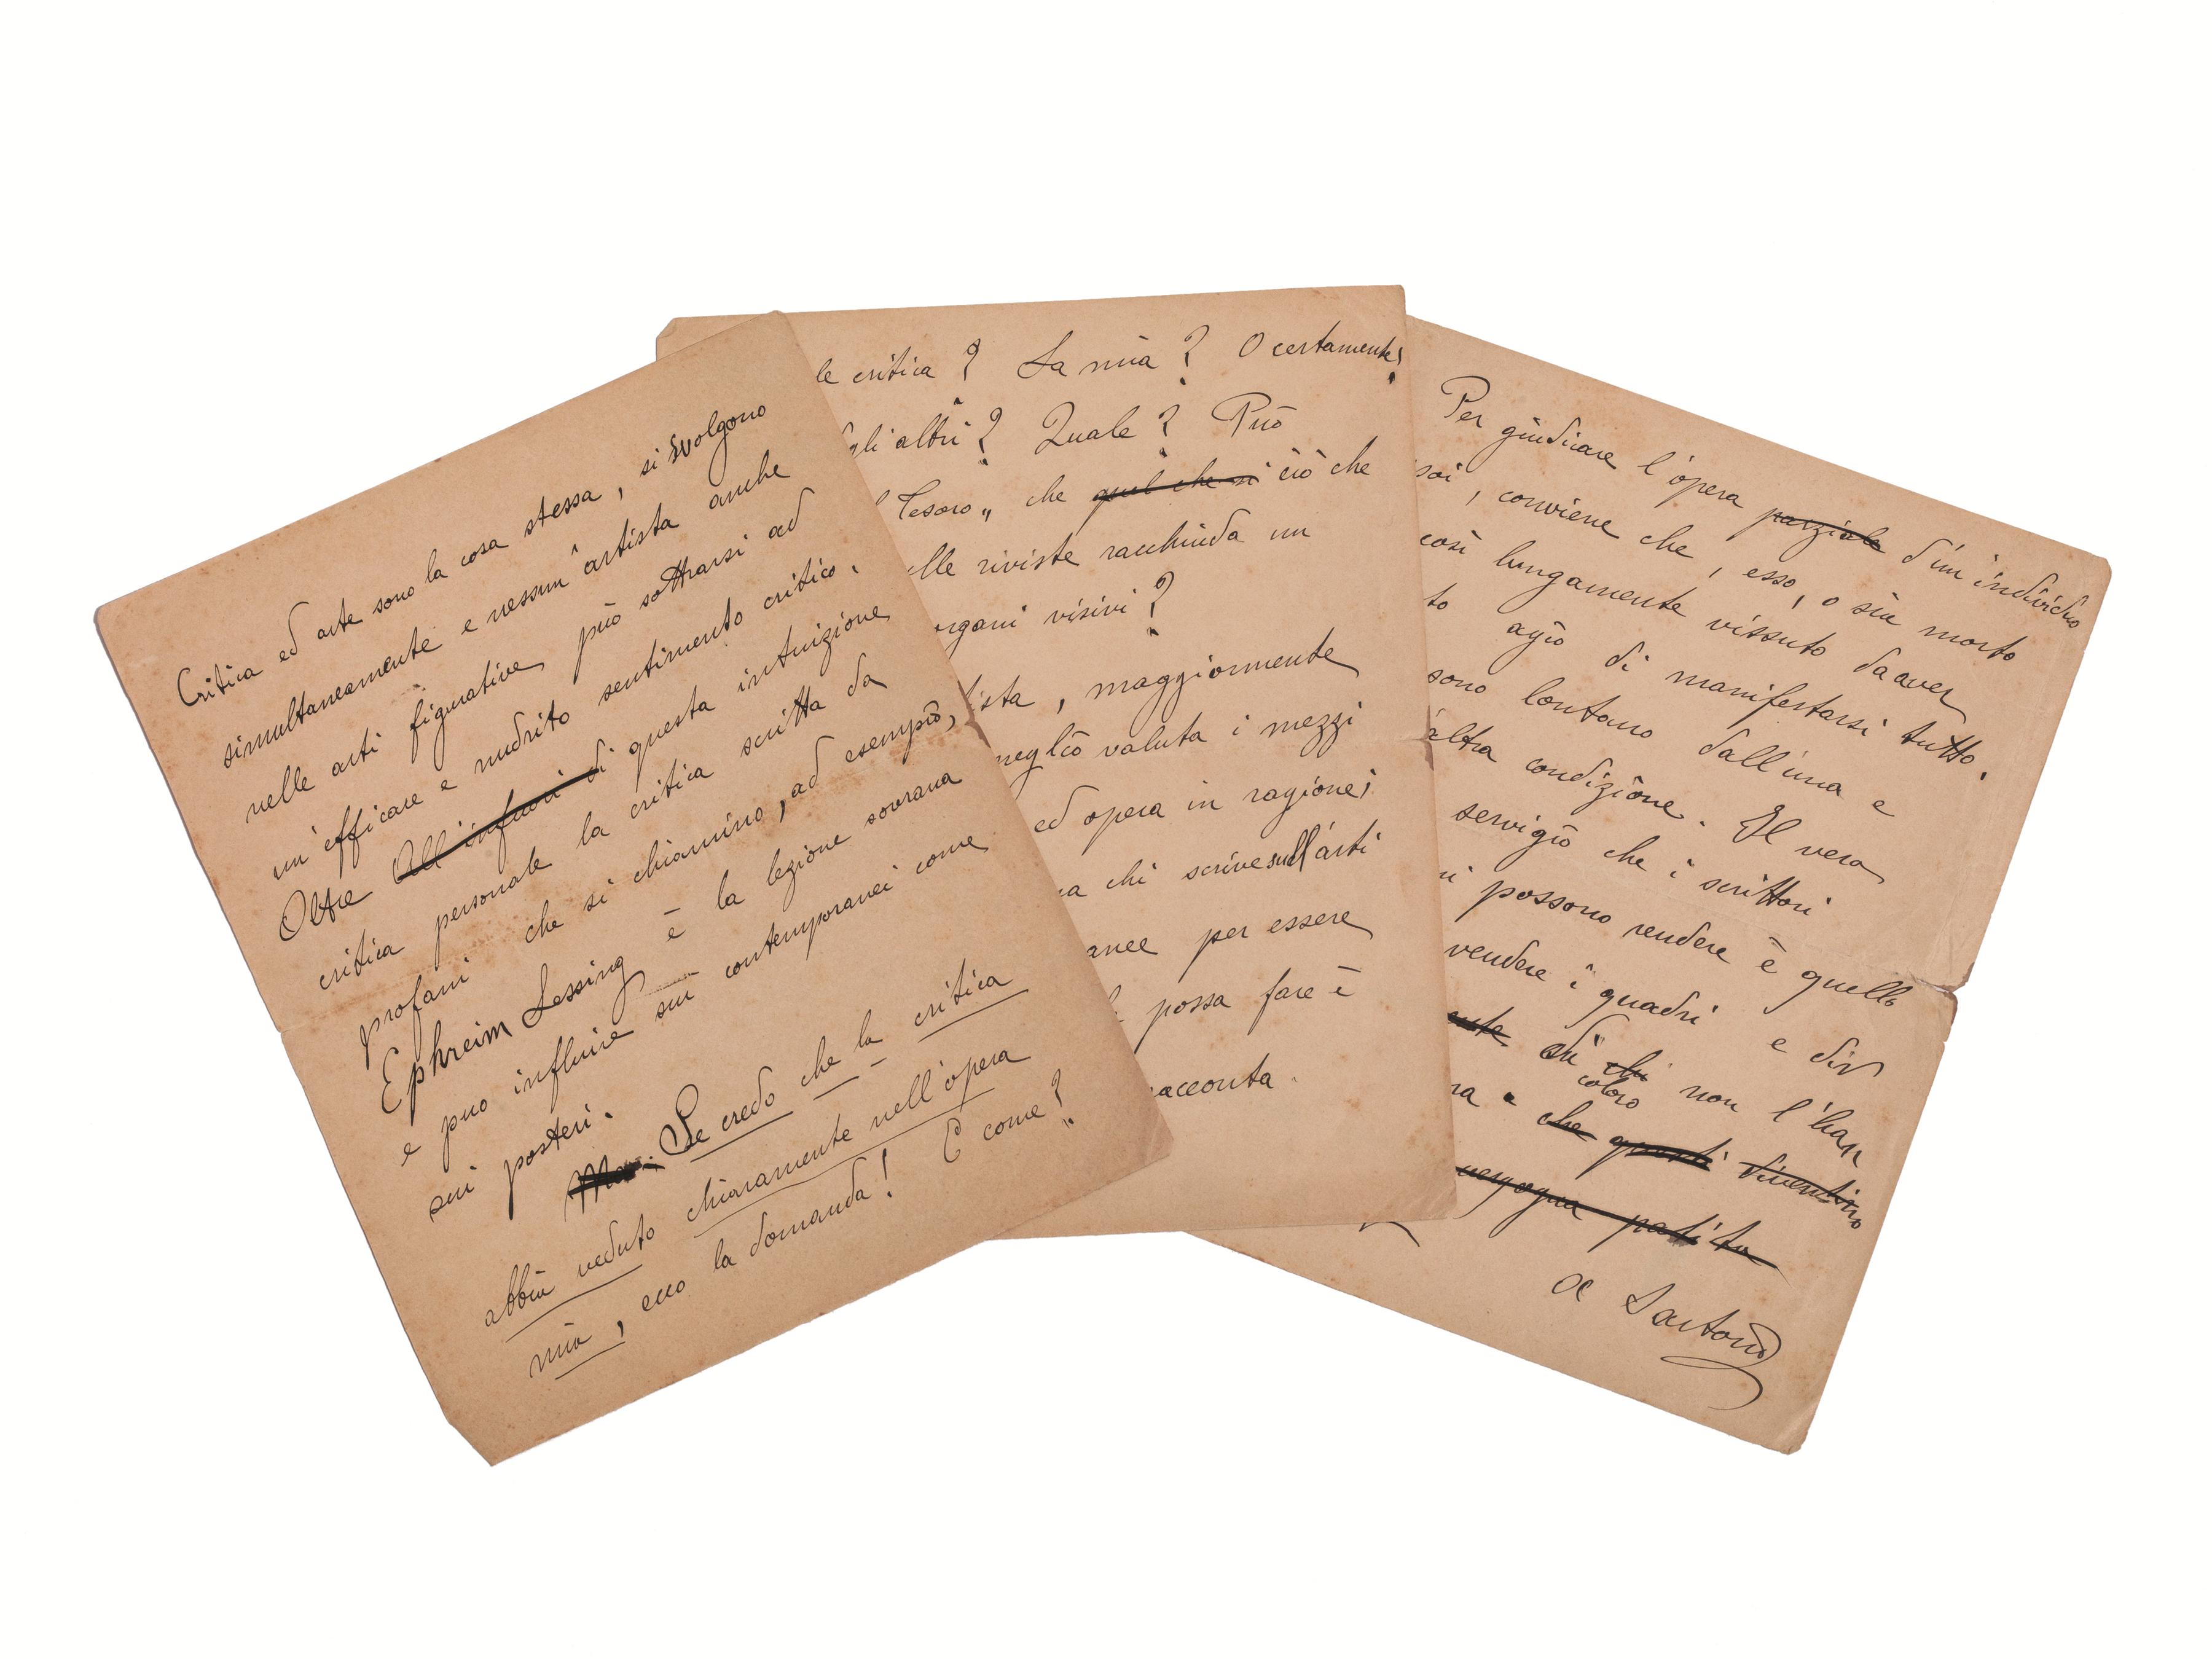 Critica ed arte sono la cosa stessa, si svolgono
simultaneamente e nessun artista anche
nelle arti figurative, può sottrarsi ad
un'efficace e nudrito sentimento critico.
Oltre All'infuori di questa intuizione
critica personale la critica scritta da
profani che si chiamino, ad esempio,
Ephreim Lessing è la lezione sovrana
e puo influire sui contemporanei come
sui posteri.
Se credo che la critica
abbia veduto chiaramente nell'opera
mia, ecco la domanda! E come?
le critica? La mia? O certamente!
gli altri? Quale? Può
Tesoro„ che quel che si ciò che
elle riviste racchiuda un
organi visivi?
ista, maggiormente
meglio valuta i mezzi
ed opera in ragione;
ma chi scrive sull'arti
anee per essere
possa fare è
racconta.
Per giudicare l'opera parziale d'un individuo
soi, conviene che, esso, o sia morto
così lungamente vissuto da aver
to agio di manifestarsi tutto.
sono lontano dall'una e
altra condizione. Il vero
servigio che i scrittori
i possono rendere è quello
vendere i quadri e dir
ente di chi non l'han
coloro
ra. che questi diventino
vergogna patita
A Sartorio